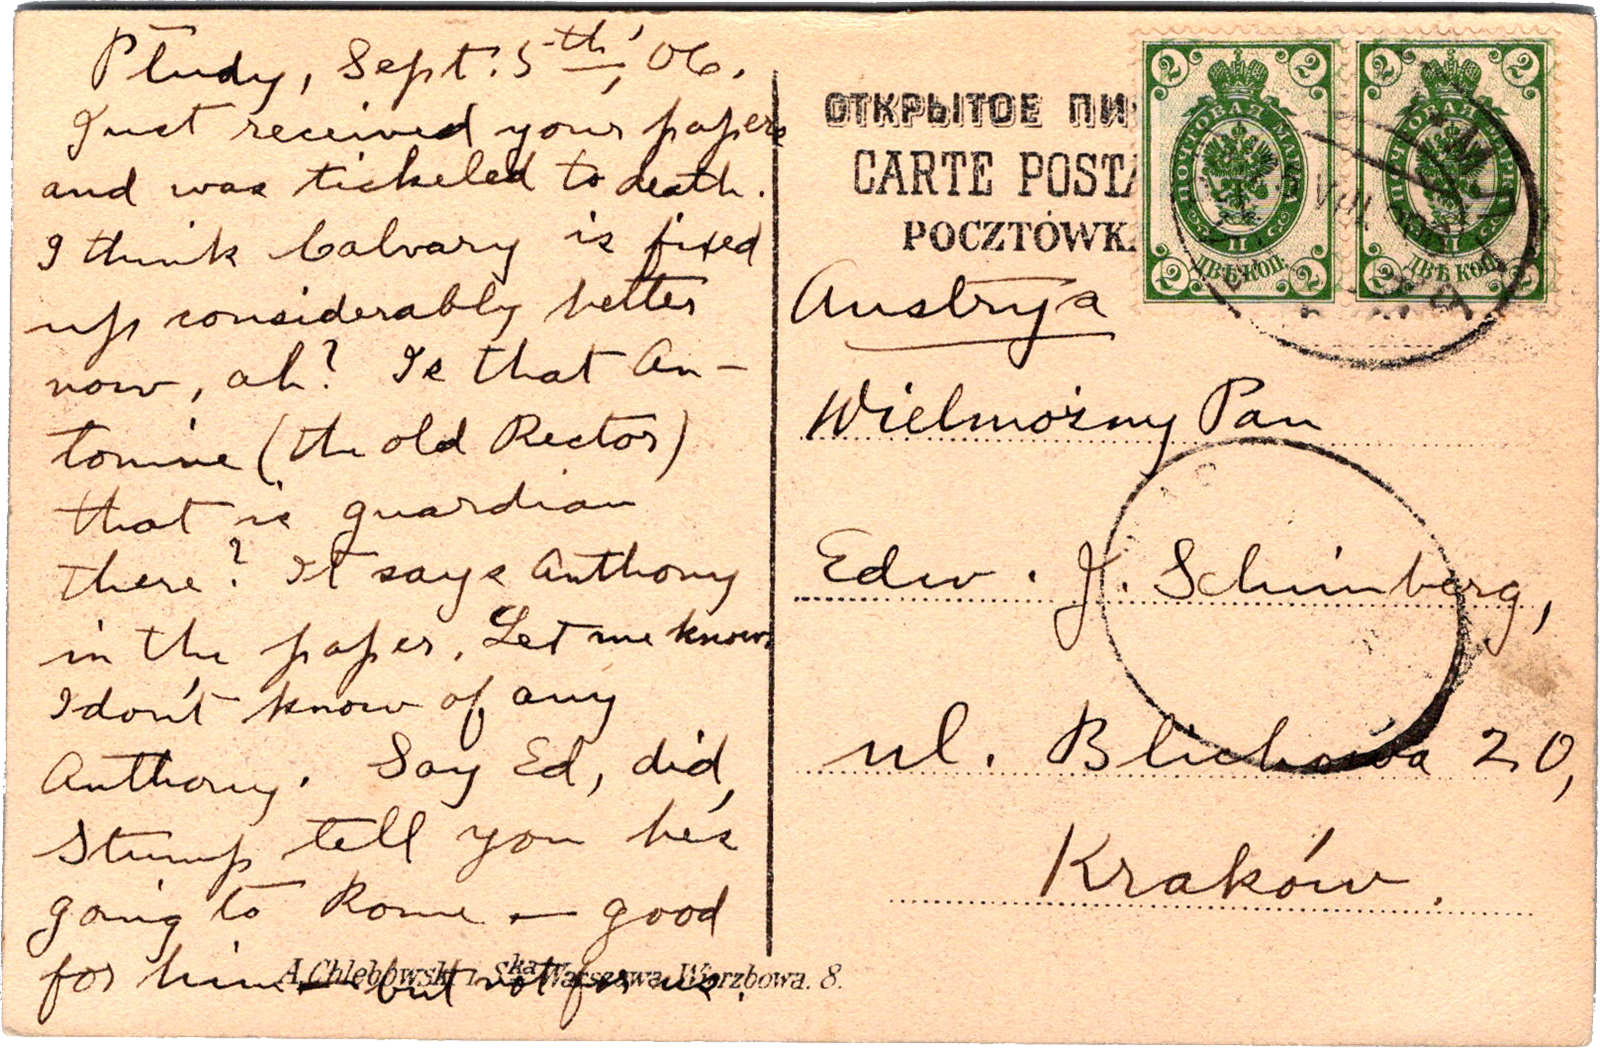 Płudy, Sept. 5th, '06.
Just received your papers
and was tickeled to death.
I think Calvary is fixed
up considerably better
now, ah? Is that An-
tonine (the old Rector)
that is guardian
there? It says Anthony
in the paper. Let me know,
I don't know of any
Anthony. Say Ed, did,
Stump tell you he's
going to Rome — good
for him — but not for us.
A. Chlebowski i S-ka Warszawa, Wierzbowa. 8.
ОТКРЫТОЕ ПИ
CARTE POSTA
POCZTÓWK
ПОЧТОВАЯ МАРКА
2 2
II
ДВѢ КОП.
2 2
ПОЧТОВАЯ МАРКА
2 2
II
ДВѢ КОП.
2 2
VIII
Austrya
Wielmożny Pan
Edw. J. Schimberg,
ul. Blichowa 20,
Kraków.